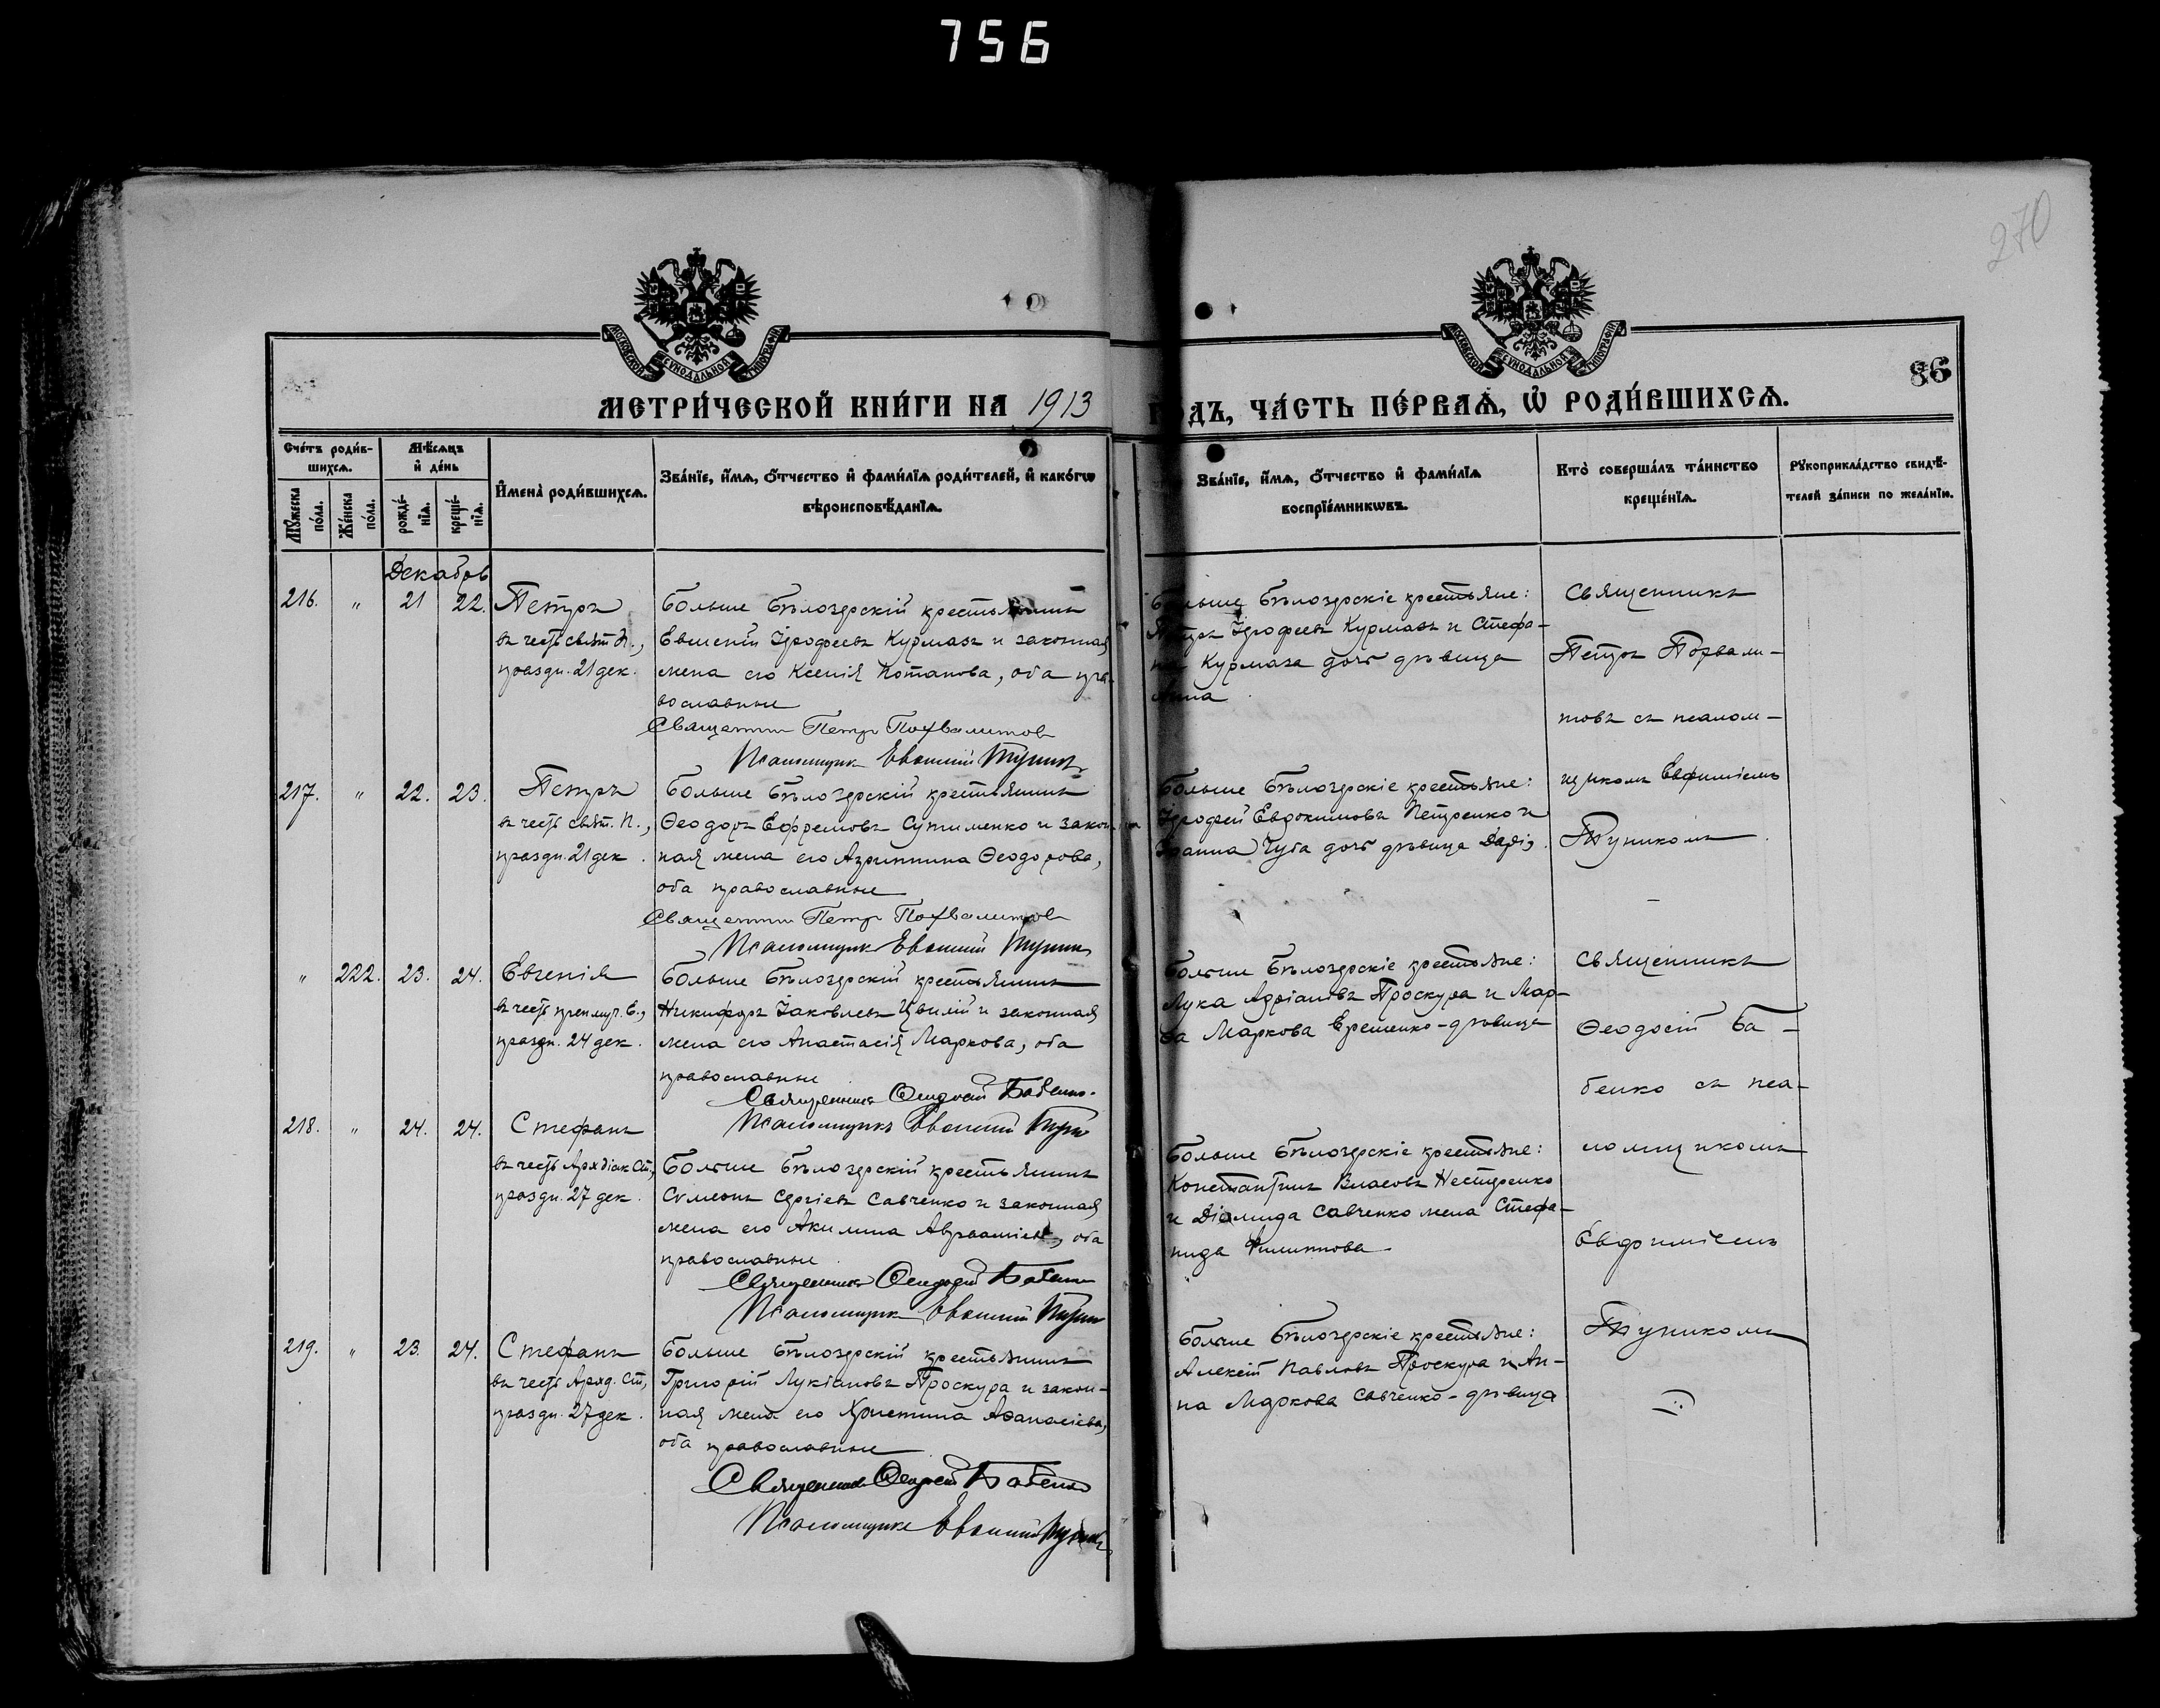 756
270
86
МОСКОВСКОЙ СѴНОДАЛЬНОЙ ТИПОГРАФІИ
МОСКОВСКОЙ СѴНОДАЛЬНОЙ ТИПОГРАФІИ
МЕТРИ́ЧЕСКОЙ КНИ́ГИ НА 1913 ГОДЪ, ЧА́СТЬ ПЕ́РВАѦ, Ѡ҆ РОДИ́ВШИХСѦ.
Сче́тъ роди́вшихсѧ.
Мꙋ́жеска по́ла.
Же́нска по́ла.
Мѣ́сѧцъ и҆ де́нь
рожде́нїѧ.
креще́нїѧ.
И҆мена̀ роди́вшихсѧ.
Зва́нїе, и҆́мѧ, ѻ҆́тчество и҆ фами́лїѧ роди́телей, и҆ како́гѡ
вѣроисповѣ́данїѧ.
Зва́нїе, и҆́мѧ, ѻ҆́тчество и҆ фами́лїѧ
воспрїе́мникѡвъ.
Кто̀ соверша́лъ та́инство
креще́нїѧ.
Рꙋкоприкла́дство свидѣ́-
телей за́писи по жела́нїю.
Декабрь
216. " 21 22. Петръ
въ честь свят. П.,
праздн. 21 дек.
Больше Бѣлозерскій крестьянинъ
Евменій Іерофеевъ Курмазъ и законная
жена его Ксенія Потапова, оба пра-
вославные
Священник Петр Похвалитов
Псаломщик Евфимий Тупик
Больше Бѣлозерскіе крестьяне:
Петръ Іерофеевъ Курмазъ и Стефа-
на Курмаза дочь дѣвица
Анна
Священникъ
Петръ Похвали-
товъ съ псалом-
щикомъ Евфиміемъ
Тупикомъ
217. " 22. 23. Петръ
въ честь свят. П.,
праздн. 21 дек.
Больше Бѣлозерскій крестьянинъ
Ѳеодоръ Ефремовъ Сутименко и закон-
ная жена его Агриппина Ѳеодорова,
оба православные
Священник Петр Похвалитов
Псаломщик Евфимий Тупик
Больше Бѣлозерскіе крестьяне:
Іерофей Евдокимовъ Петренко и
Іоанна Чуба дочь дѣвица Дарія.
" 222. 23. 24. Евгенія
въ честь препмуч. Е.,
праздн. 24 дек.
Больше Бѣлозерскій крестьянинъ
Никифоръ Іаковлевъ Цвилій и законная
жена его Анастасія Маркова, оба
православные
Священникъ Ѳеодосій Бабенко.
Псаломщикъ Евфимий Тупик
Больше Бѣлозерскіе крестьяне:
Лука Адріановъ Проскура и Мар-
ѳа Маркова Ерешенко - дѣвица
Священникъ
Ѳеодосій Ба-
бенко съ пса-
ломщикомъ
Евфиміемъ
Тупикомъ
218. " 24. 24. Стефанъ
въ честь Архдіак. Ст.,
праздн. 27 дек.
Больше Бѣлозерскій крестьянинъ
Сѵмеонъ Сергіевъ Савченко и законная
жена его Акилина Аврааміева, оба
православные
Священникъ Ѳеодосій Бабенко
Псаломщик Евфимий Тупик
Больше Бѣлозерскіе крестьяне:
Константинъ Власовъ Нестеренко
и Діомида Савченко жена Стефа-
нида Филиппова
219. " 23. 24. Стефанъ
въ честь Архд. Ст.,
праздн. 27 дек.
Больше Бѣлозерскій крестьянинъ
Григорій Лукіановъ Проскура и закон-
ная жена его Христина Аѳанасіева,
оба православные
Священникъ Ѳеодосій Бабенко
Псаломщикъ Евфимий Тупик
Больше Бѣлозерскіе крестьяне:
Алексій Павловъ Проскура и Ан-
на Маркова Савченко - дѣвица